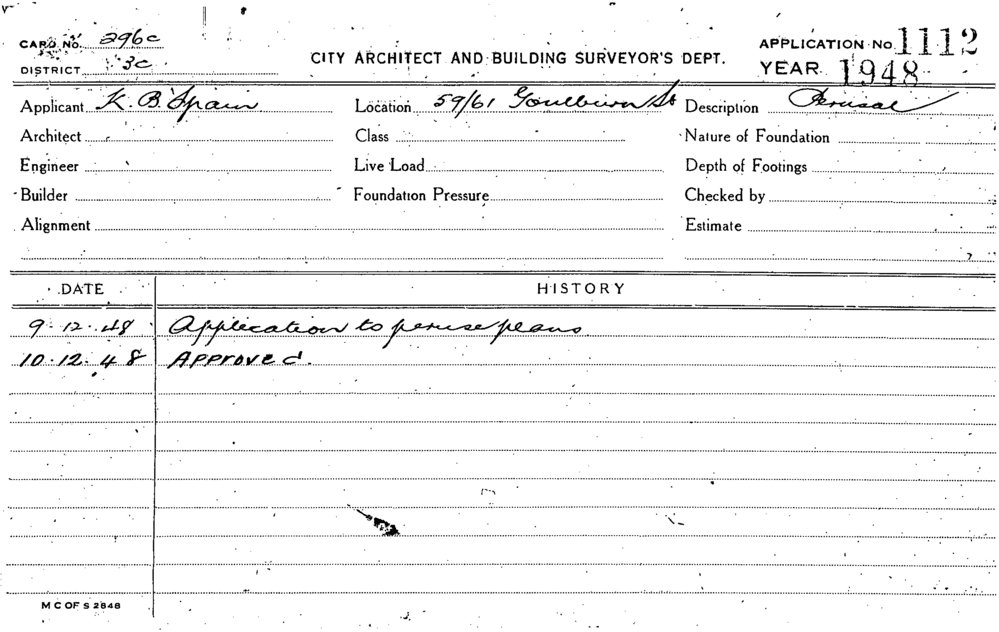 CARD No. 296c
DISTRICT 3c
CITY ARCHITECT AND BUILDING SURVEYOR'S DEPT.
APPLICATION No. 1112
YEAR 1948
Applicant K. B. Spain Location 59/61 Goulburn St Description Perusal
Architect Class Nature of Foundation
Engineer Live Load Depth of Footings
Builder Foundation Pressure Checked by
Alignment Estimate
DATE HISTORY
9.12.48 Application to peruse plans
10.12.48 Approved.
M C OF S 2848